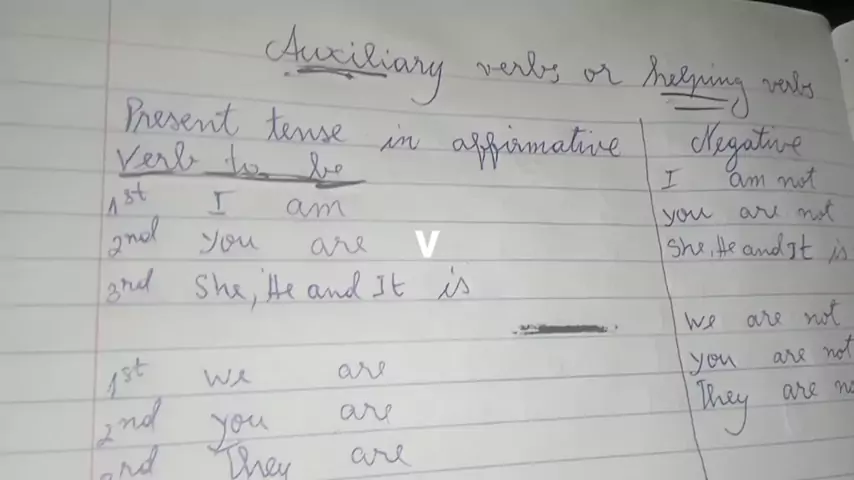 Auxiliary verbs or helping verbs
Present tense in affirmative
Verb to be
1st I am
2nd you are
3rd She, He and It is
1st we are
2nd you are
3rd They are
Negative
I am not
you are not
She, He and It is
We are not
you are not
They are
V